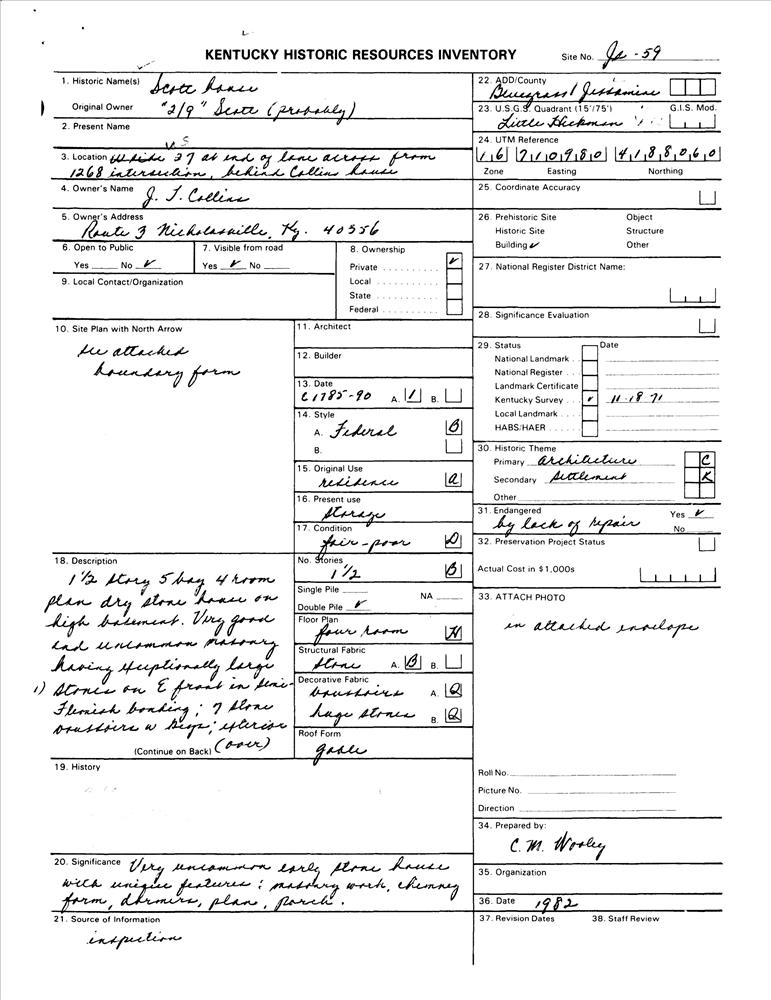 KENTUCKY HISTORIC RESOURCES INVENTORY
Site No. Js - 59
1. Historic Name(s) Scott house
Original Owner "2/9" Scott (probably)
2. Present Name
U S
3. Location 27 at end of lane across from
1268 intersection, behind Collins house
4. Owner's Name J. T. Collins
5. Owner's Address
Route 3 Nicholasville, Ky. 40356
6. Open to Public
Yes No ✓
7. Visible from road
Yes ✓ No
8. Ownership
Private ✓
Local
State
Federal
9. Local Contact/Organization
10. Site Plan with North Arrow
see attached
boundary form
11. Architect
12. Builder
13. Date
C 1785-90 A. 1 B.
14. Style
A. Federal B
B.
15. Original Use
residence a
16. Present use
storage
17. Condition
fair-poor D
18. Description
1½ story 5 bay 4 room
plan dry stone house on
high basement. Very good
and uncommon masonry
having exceptionally large
1) stones on E front in semi-
Flemish bonding; 7 stone
voussoirs w keys; exterior
(Continue on Back) (over)
No. Stories
1½ B
Single Pile NA
Double Pile ✓
Floor Plan
four room N
Structural Fabric
stone A. B B.
Decorative Fabric
voussoirs A. Q
huge stones B. Q
Roof Form
gable
19. History
20. Significance Very uncommon early stone house
with unique features: masonry work, chimney
form, dormers, plan, porch.
21. Source of Information
inspection
22. ADD/County
Bluegrass/Jessamine
23. U.S.G.S. Quadrant (15'/75') G.I.S. Mod.
Little Hickman
24. UTM Reference
16 710980 4188060
Zone Easting Northing
25. Coordinate Accuracy
26. Prehistoric Site Object
Historic Site Structure
Building ✓ Other
27. National Register District Name:
28. Significance Evaluation
29. Status Date
National Landmark
National Register
Landmark Certificate
Kentucky Survey ✓ 11-18-71
Local Landmark
HABS/HAER
30. Historic Theme
Primary architecture C
Secondary settlement K
Other
31. Endangered Yes ✓
by lack of repair No
32. Preservation Project Status
Actual Cost in $1,000s
33. ATTACH PHOTO
in attached envelope
Roll No.
Picture No.
Direction
34. Prepared by:
C. M. Wooley
35. Organization
36. Date 1982
37. Revision Dates 38. Staff Review